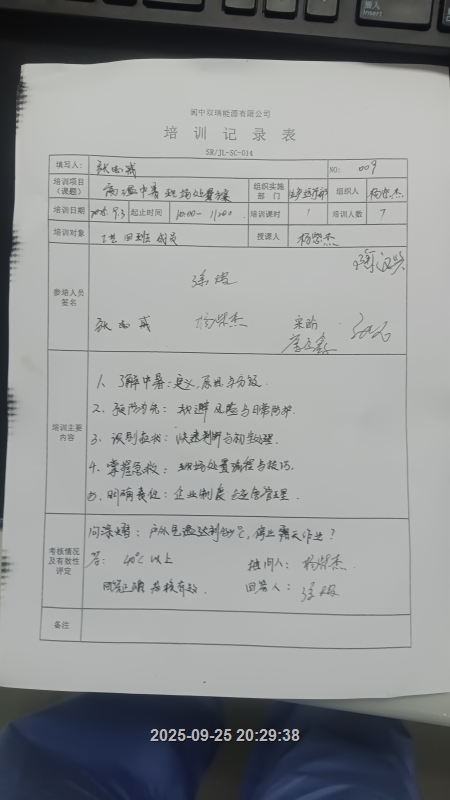 嵌入
Insert
阆中双瑞能源有限公司
培训记录表
SR/JL-SC-014
填写人： NO: 009
培训项目（课题） 高温中暑现场处置方案 组织实施部门 组织人 杨荣杰
培训日期 2025.9.3 起止时间 10:00-11:00 培训课时 1 培训人数 7
培训对象 四班成员 授课人 杨荣杰
参培人员签名
杨荣杰
培训主要内容
1、了解中暑：定义、原因与分级.
2、预防为先：规避风险与日常防护.
3、识别症状：快速判断与初步处理.
4、掌握急救：现场处置流程与技巧.
5、明确责任：企业制度与应急管理.
考核情况及有效性评定
问 ：户外气温达到多少℃，停止露天作业？
答： 40℃以上 提问人：杨荣杰.
回答正确 考核有效. 回答人：
备注
2025-09-25 20:29:38